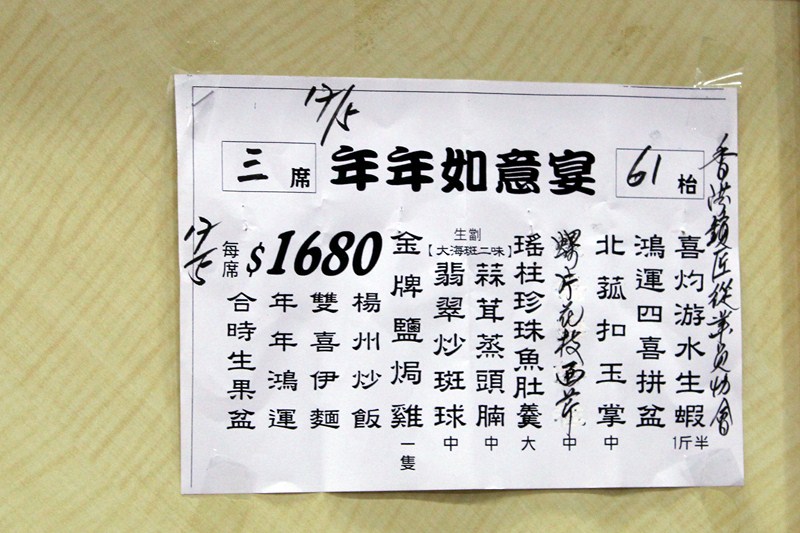 17/5
三席
年年如意宴
61枱
香港鎖匠從業員協會
喜灼游水生蝦 1斤半
鴻運四喜拼盆
北菰扣玉掌 中
螺片花枝西芹 中
瑤柱珍珠魚肚羹 大
生劏
【大海斑二味】
蒜茸蒸頭腩 中
翡翠炒斑球 中
金牌鹽焗雞 一隻
17/5
每席 $1680
楊州炒飯
雙喜伊麵
年年鴻運
合時生果盆